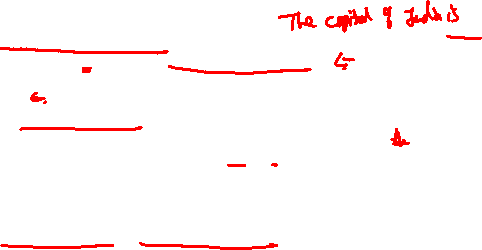 The capital of India is